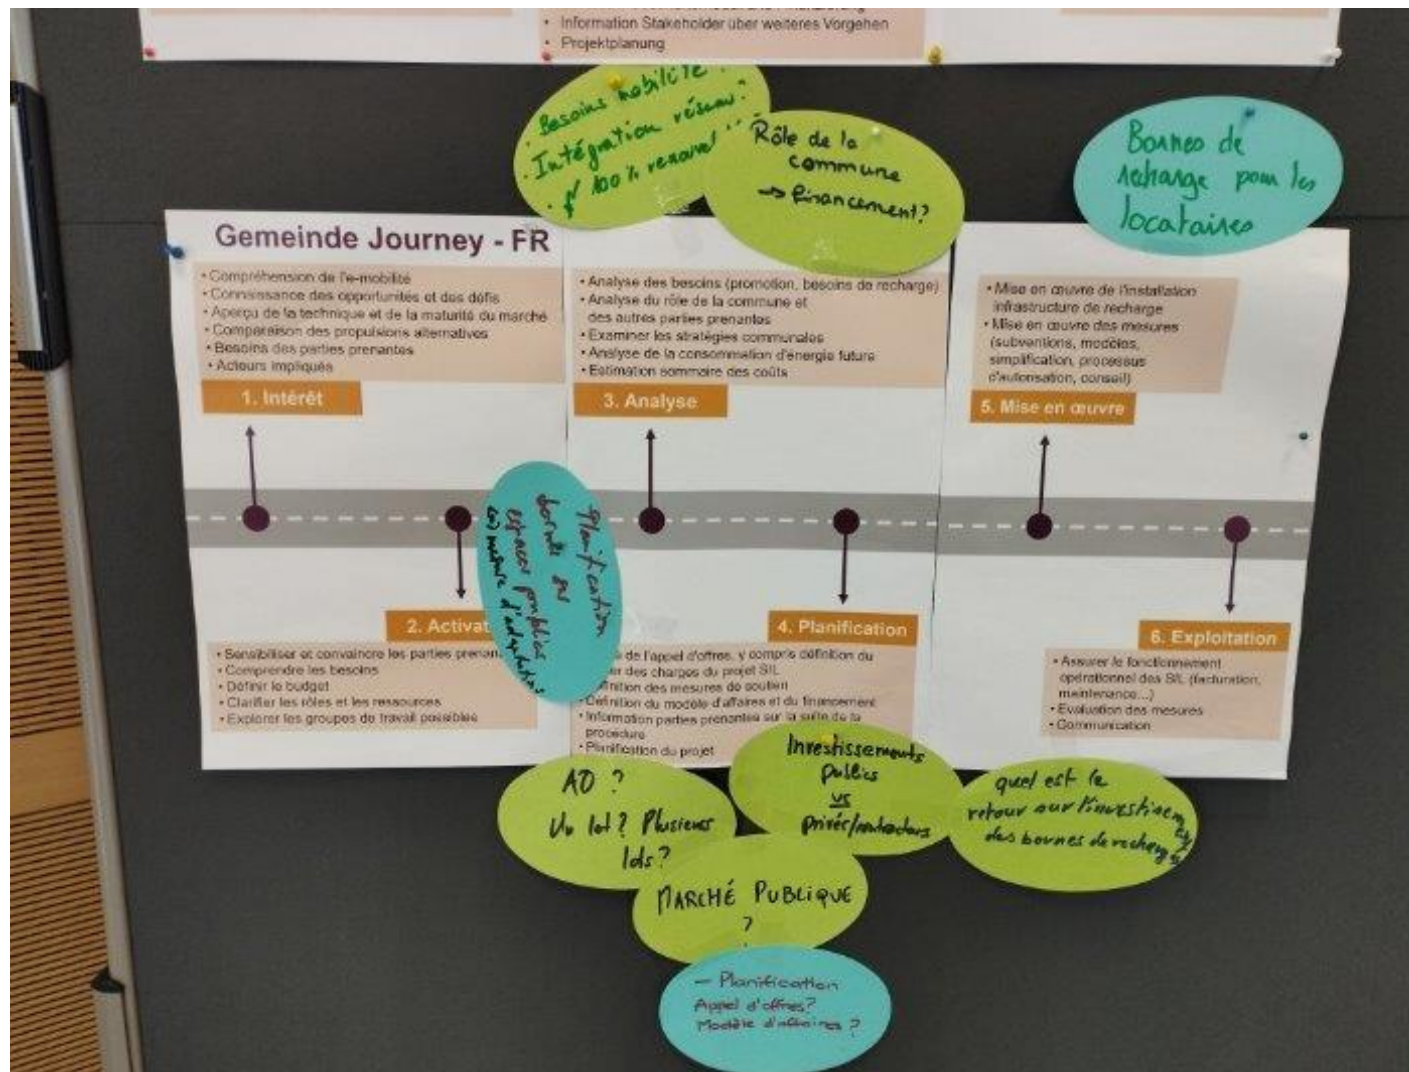 Information Stakeholder über weiteres Vorgehen
• Projektplanung
Besoins mobilité
• Intégration réseau?
100% renouvel
Rôle de la
commune
→ financement?
Bornes de
recharge pour les
locataires
Gemeinde Journey - FR
• Compréhension de l'e-mobilité
• Connaissance des opportunités et des défis
• Aperçu de la technique et de la maturité du marché
• Comparaison des propulsions alternatives
• Besoins des parties prenantes
• Acteurs impliqués
1. Intérêt
• Analyse des besoins (promotion, besoins de recharge)
• Analyse du rôle de la commune et
des autres parties prenantes
• Examiner les stratégies communales
• Analyse de la consommation d'énergie future
• Estimation sommaire des coûts
3. Analyse
• Mise en œuvre de l'installation
infrastructure de recharge
• Mise en œuvre des mesures
(subventions, modèles,
simplification, processus
d'autorisation, conseil)
5. Mise en œuvre
Planification
borne sur
espaces publics
mesure d'adaptation
2. Activat
• Sensibiliser et convaincre les parties prenan
• Comprendre les besoins
• Définir le budget
• Clarifier les rôles et les ressources
• Explorer les groupes de travail possibles
4. Planification
de l'appel d'offres, y compris définition du
des charges du projet SIL
finition des mesures de soutien
• Définition du modèle d'affaires et du financement
• Information parties prenantes sur la suite de la
procédure
• Planification du projet
6. Exploitation
• Assurer le fonctionnement
opérationnel des SIL (facturation,
maintenance...)
• Evaluation des mesures
• Communication
AO ?
Un lot? Plusieurs
lots?
Investissements
publics
vs
privés/contractors
quel est le
retour sur l'investissement
des bornes de recharge
MARCHÉ PUBLIQUE
?
— Planification
Appel d'offres?
Modèle d'affaires ?